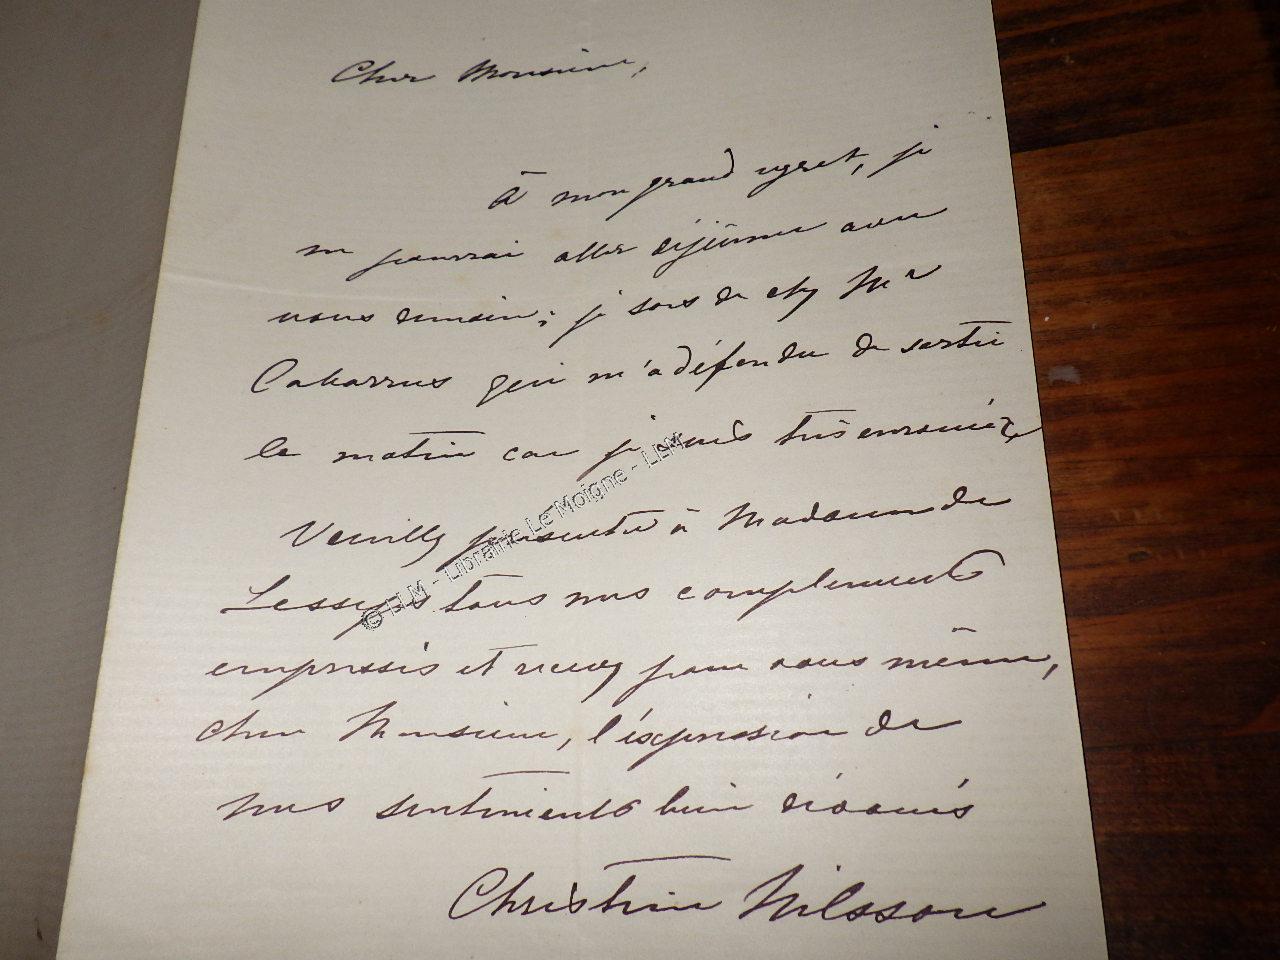 Cher Monsieur,
À mon grand regret, je
ne pourrai aller déjeûner avec
vous demain; je sors de chez Mr
Cabarrus qui m'a défendu de sortir
le matin car je suis très enrouée
Veuillez présenter à Madame de
Lesseps tous mes compliments
empressés et recevez pour vous même,
cher Monsieur, l'expression de
mes sentiments bien dévoués
Christine Nilsson
© LLM - Librairie Le Moigne - LLM